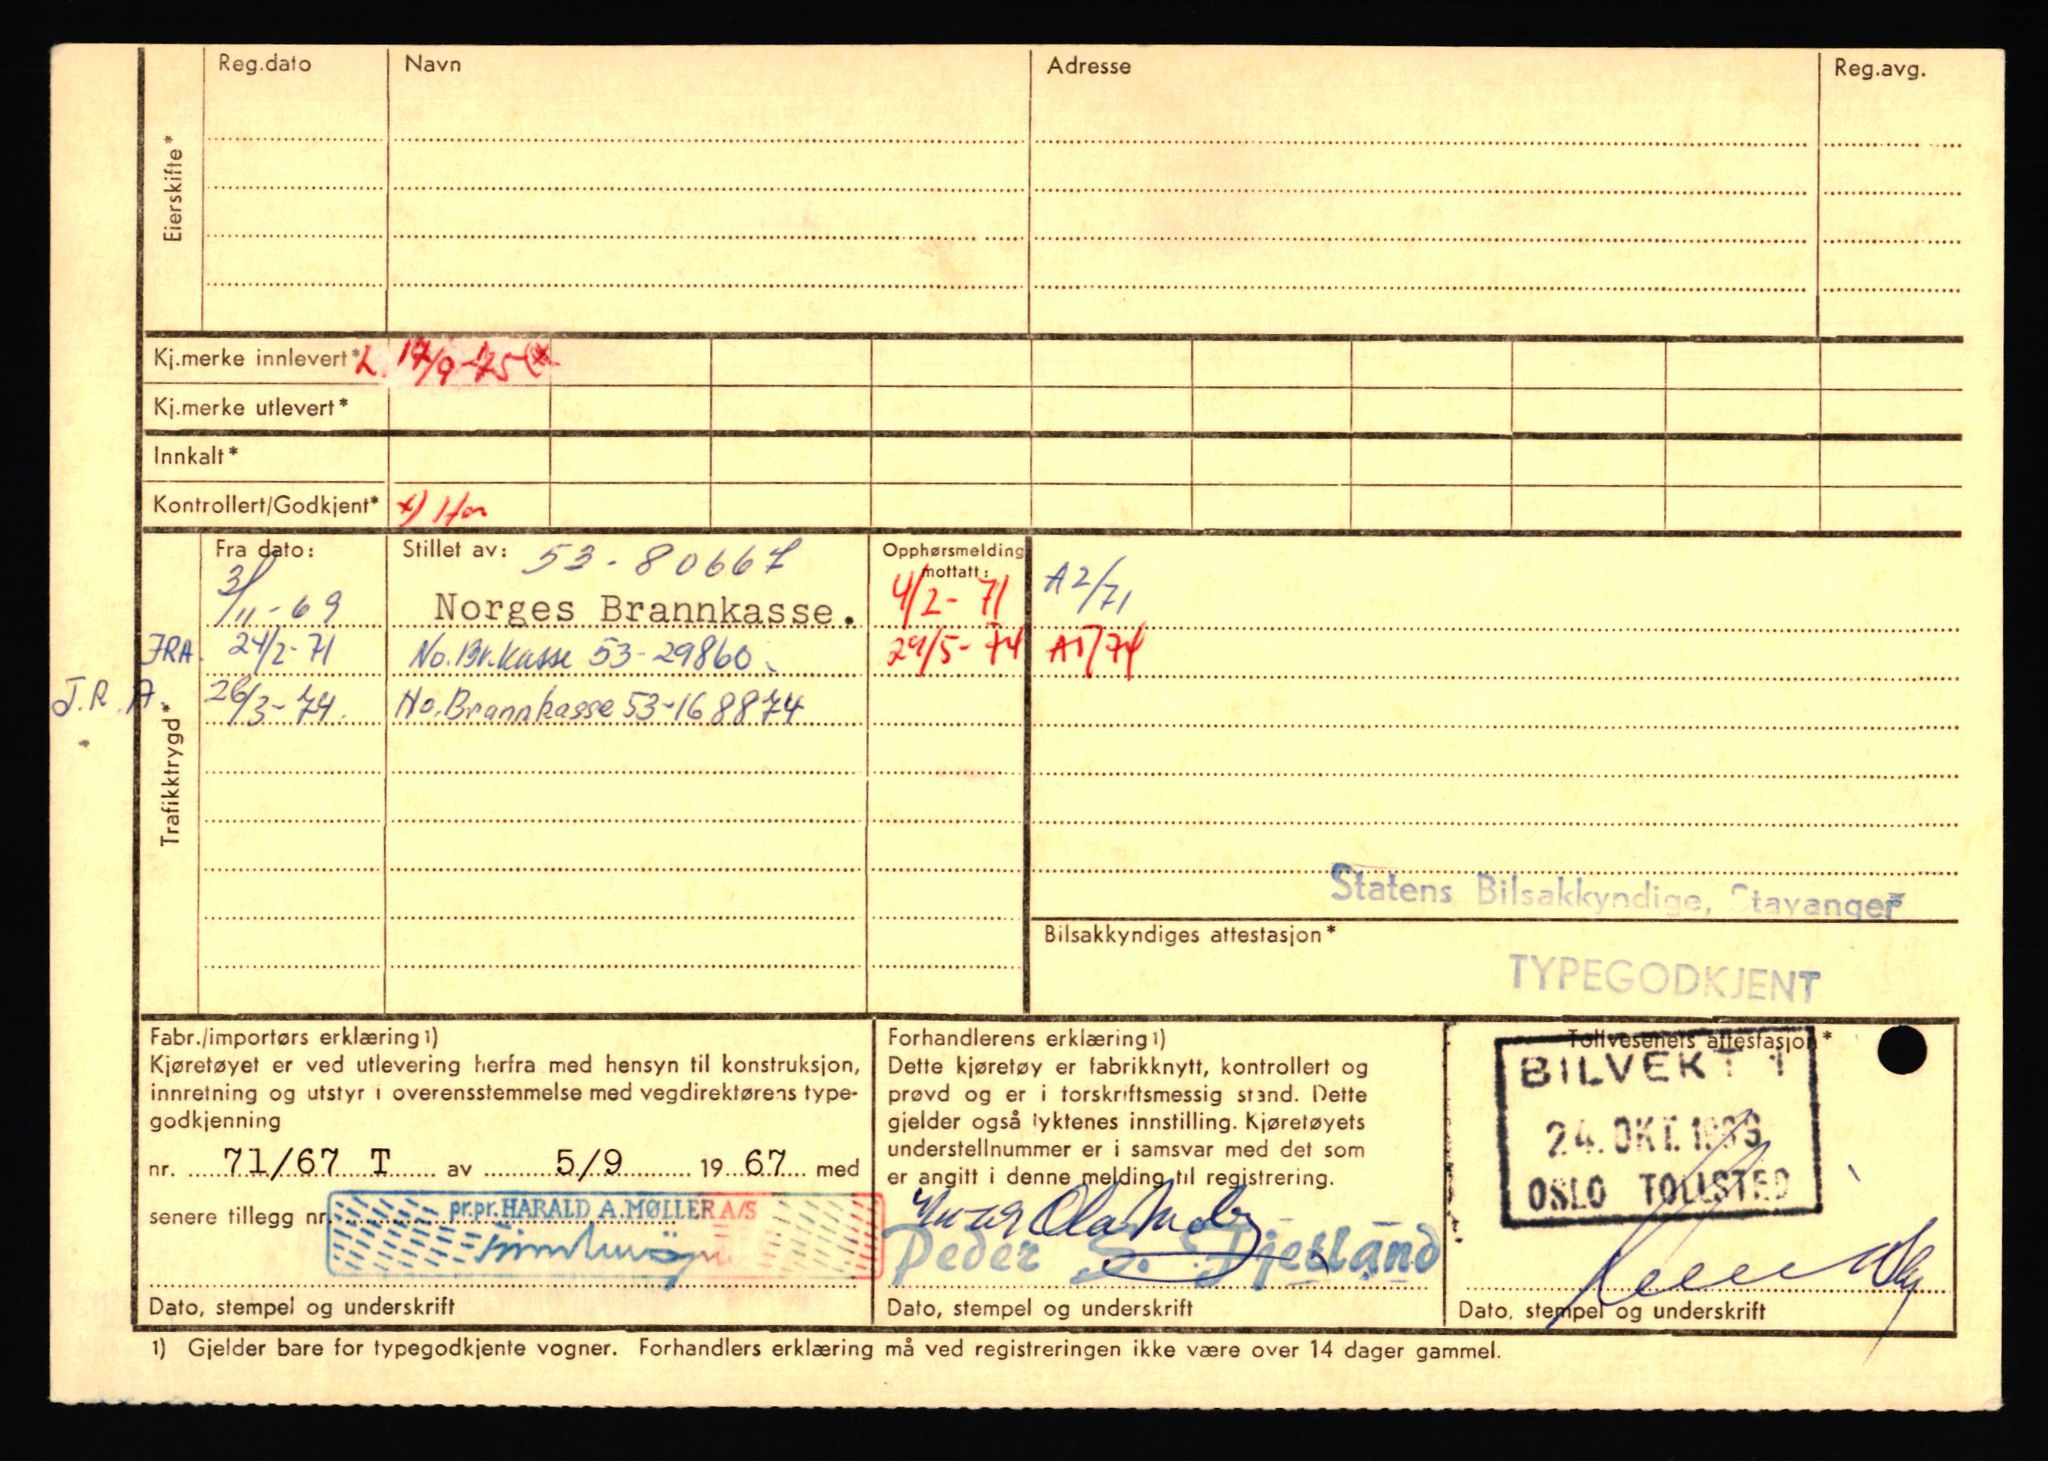 Reg.dato Navn Adresse Reg.avg.
Eierskifte*
Kj.merke innlevert* L. 17/9-75 (x
Kj.merke utlevert*
Innkalt*
Kontrollert/Godkjent* x)
Fra dato: Stillet av: 53-80667 Opphørsmelding mottatt:
3/11-69 Norges Brannkasse. 4/2-71 A2/71
JRA. 24/2-71 No.Br.kasse 53-29860. 29/5-74 A1/74
J.R.A 26/3-74. No.Brannkasse 53-168874
Trafikktrygd*
Statens Bilsakkyndige, Stavanger
Bilsakkyndiges attestasjon*
TYPEGODKJENT
Fabr./importørs erklæring 1)
Kjøretøyet er ved utlevering herfra med hensyn til konstruksjon,
innretning og utstyr i overensstemmelse med vegdirektørens type-
godkjenning
nr. 71/67 T av 5/9 1967 med
senere tillegg nr.
pr.pr. HARALD A. MØLLER A/S
Dato, stempel og underskrift
Forhandlerens erklæring 1)
Dette kjøretøy er fabrikknytt, kontrollert og
prøvd og er i forskriftsmessig stand. Dette
gjelder også lyktenes innstilling. Kjøretøyets
understellnummer er i samsvar med det som
er angitt i denne melding til registrering.
Peder S. Fjelland
Dato, stempel og underskrift
Tollvesenets attestasjon*
BILVEKT 1
24. OKT.
OSLO TOLLSTED
Dato, stempel og underskrift
1) Gjelder bare for typegodkjente vogner. Forhandlers erklæring må ved registreringen ikke være over 14 dager gammel.